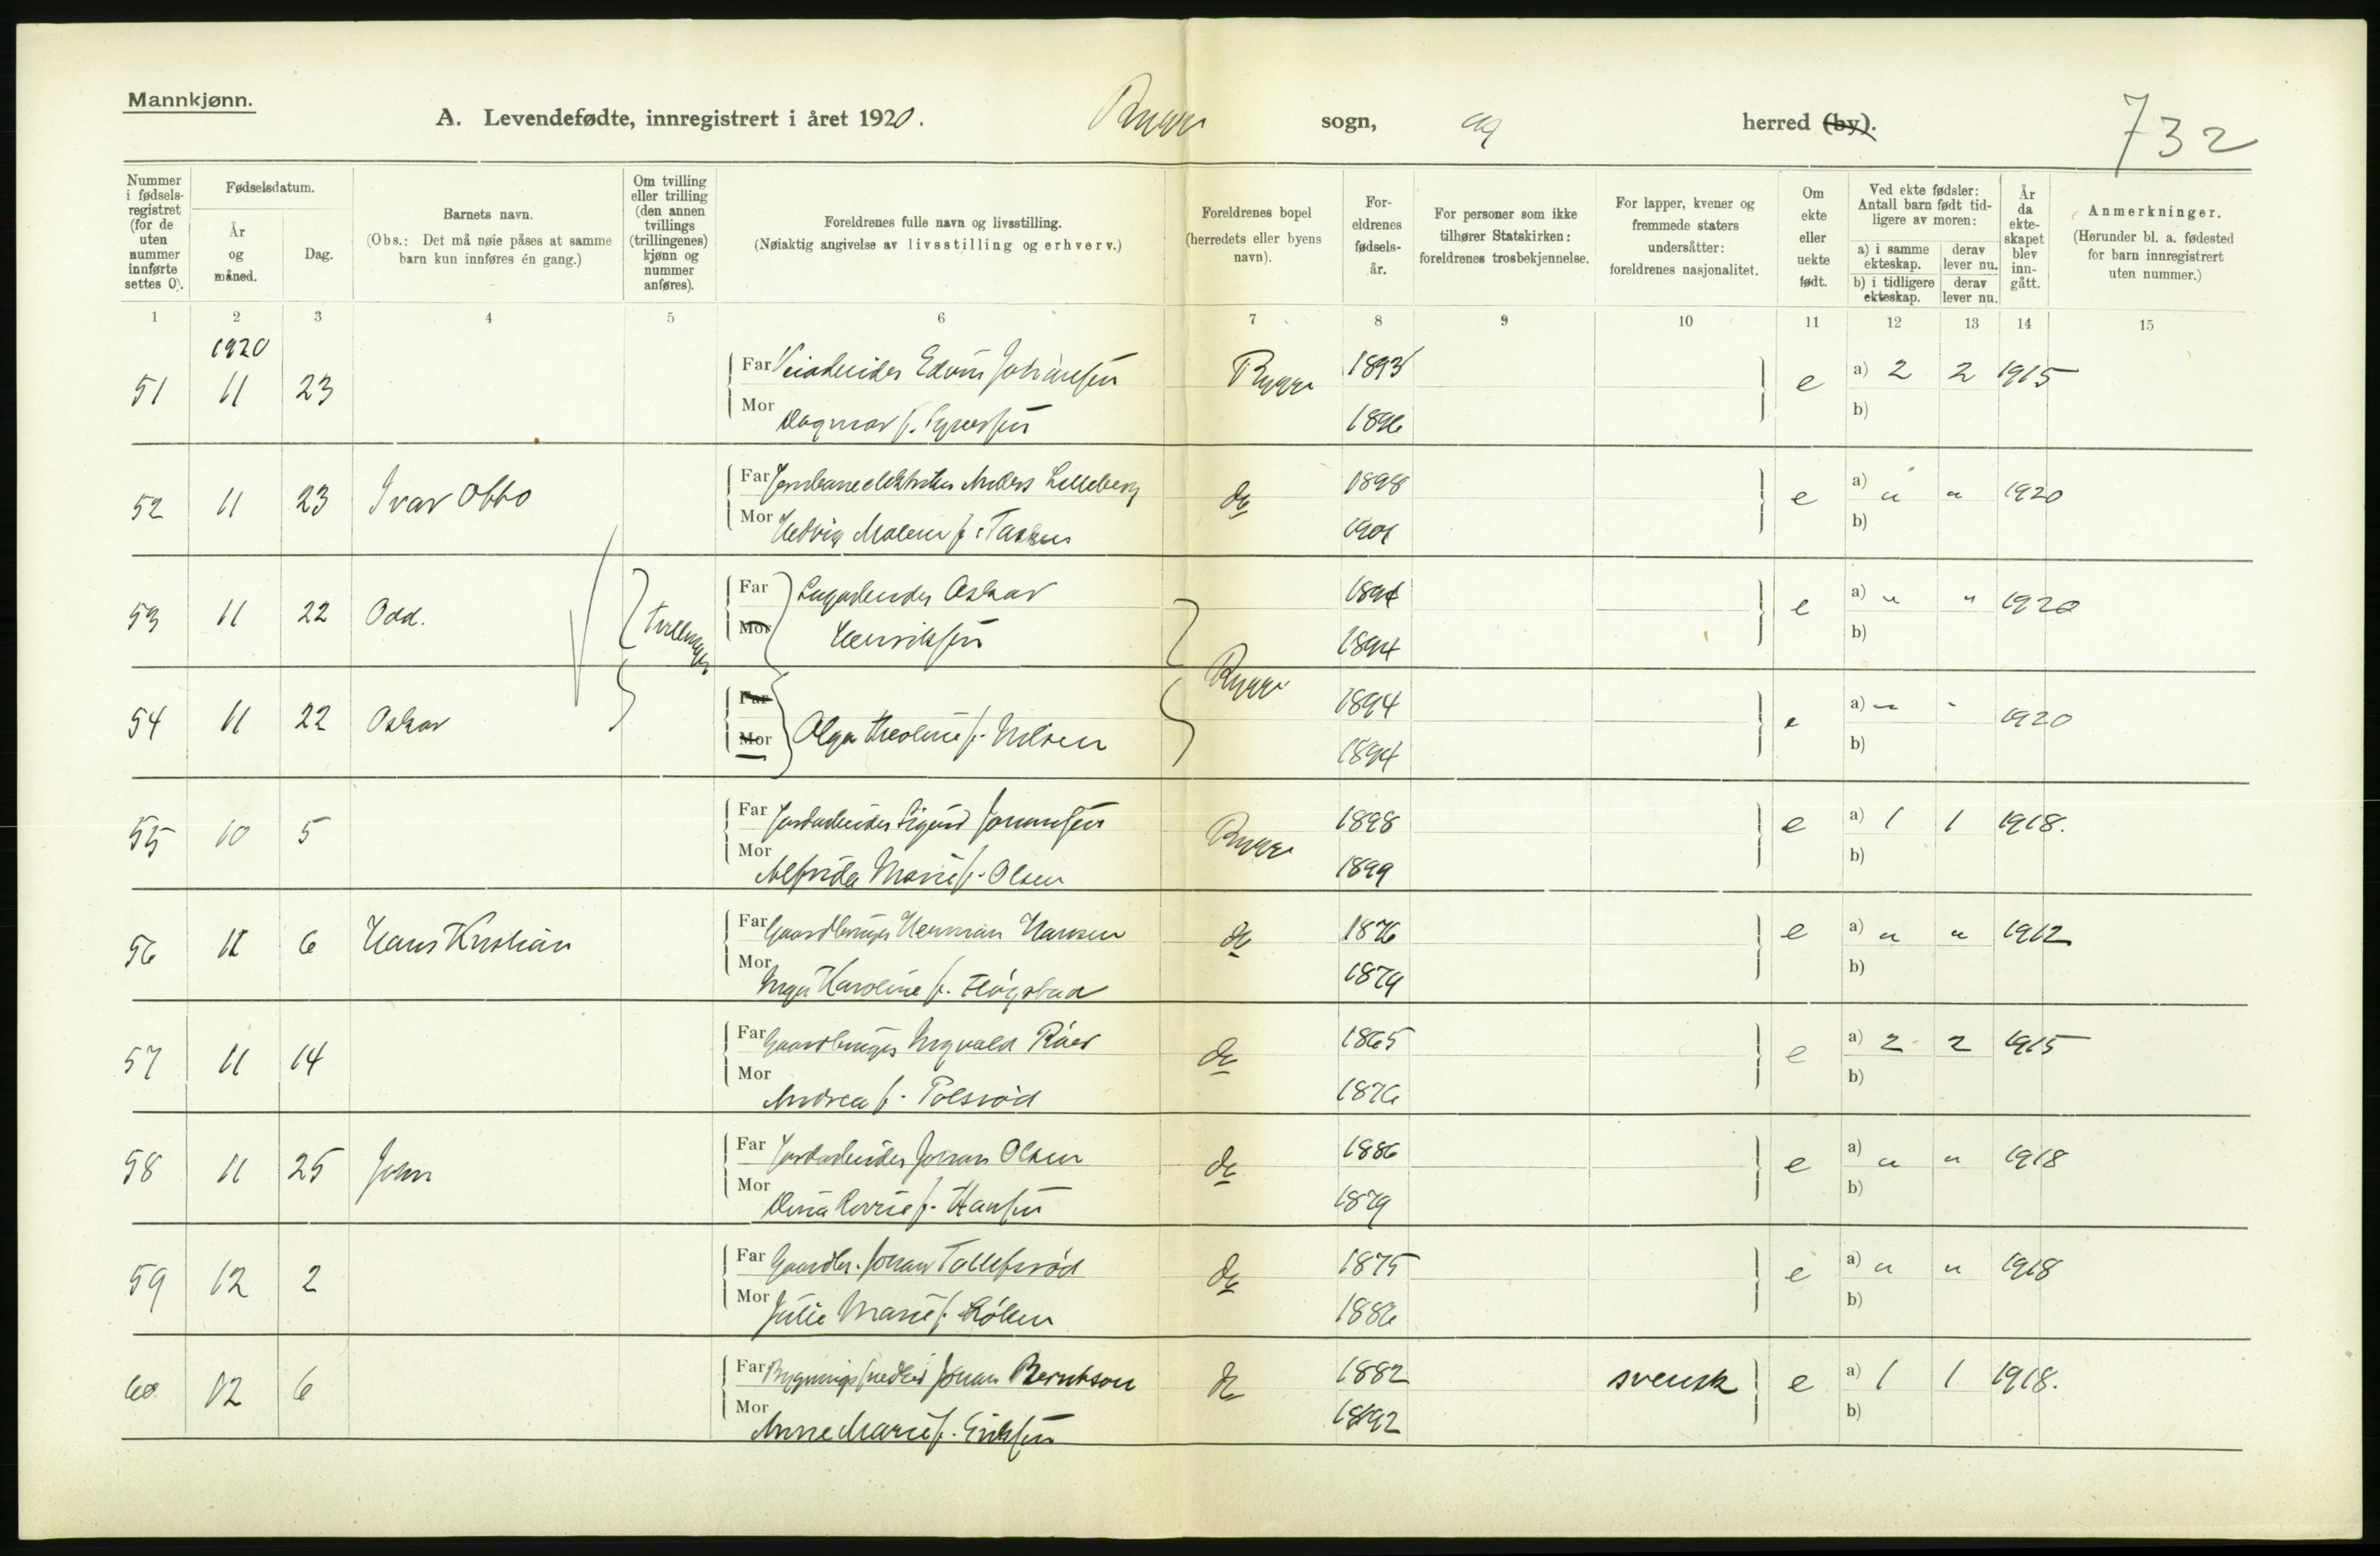 Mannkjønn.
A. Levendefødte, innregistrert i året 1920. Rygge sogn, og herred (by).
732
Nummer i fødselsregistret (for de uten nummer innførte settes 0).
Fødselsdatum.
År og måned.
Dag.
Barnets navn.
(Obs.: Det må nøie påses at samme barn kun innføres én gang.)
Om tvilling eller trilling (den annen tvillings (trillingenes) kjønn og nummer anføres).
Foreldrenes fulle navn og livsstilling.
(Nøiaktig angivelse av livsstilling og erhverv.)
Foreldrenes bopel (herredets eller byens navn).
Foreldrenes fødselsår.
For personer som ikke tilhører Statskirken: foreldrenes trosbekjennelse.
For lapper, kvener og fremmede staters undersåtter: foreldrenes nasjonalitet.
Om ekte eller uekte født.
Ved ekte fødsler: Antall barn født tidligere av moren:
a) i samme ekteskap. derav lever nu.
b) i tidligere ekteskap. derav lever nu.
År da ekteskapet blev inngått.
Anmerkninger.
(Herunder bl. a. fødested for barn innregistrert uten nummer.)
1 2 3 4 5 6 7 8 9 10 11 12 13 14 15
1920
51 11 23 Far Veiarbeider Edvin Johansen Rygge 1893 e a) 2 2 1915
Mor Dagmar f. 1896 b)
52 11 23 Ivar Otto Far Anders Lilleberg do 1898 e a) " " 1920
Mor Hedvig f. 1901 b)
53 11 22 Odd. Tvillinger Far Oskar 1894 e a) " " 1920
Mor Henriksen 1894 b)
Rygge
54 11 22 Oskar Far 1894 e a) " " 1920
Mor Olga f. Nilsen 1894 b)
55 10 5 Far Jordarbeider Sigurd Johansen Rygge 1898 e a) 1 1 1918.
Mor Alfrida Marie f. Olsen 1899 b)
56 11 6 Hans Kristian Far Gaardbruger Herman Hansen do 1876 e a) " " 1912
Mor Inga Karoline f. 1879 b)
57 11 14 Far Gaardbruger Ingvald Röer do 1865 e a) 2 2 1915
Mor Andrea f. 1876 b)
58 11 25 John Far Jordarbeider Johan Olsen do 1886 e a) " " 1918
Mor f. Hansen 1879 b)
59 12 2 Far Gaardbr. Johan Tollefsröd do 1875 e a) " " 1918
Mor Julie Marie f. 1886 b)
60 12 6 Far Johan Berntson do 1882 svensk e a) 1 1 1918.
Mor Anne Marie f. Eriksen 1892 b)